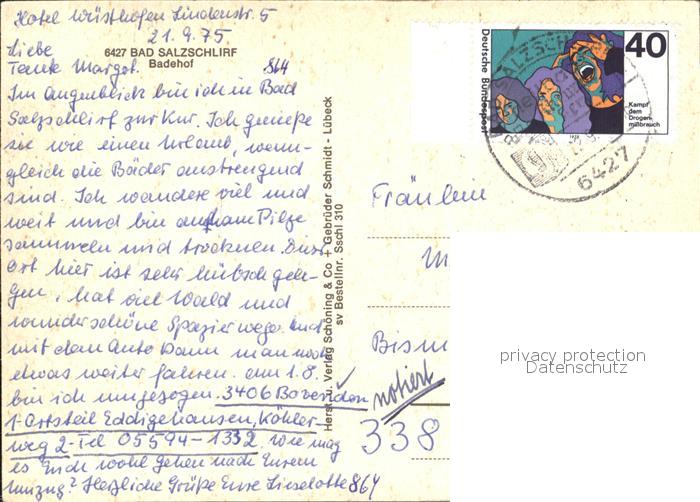 Hotel Wüsthofen Lindenstr. 5
21.9.75
6427 BAD SALZSCHLIRF
Badehof
Liebe
Tante Margot. 864
Im Augenblick bin ich in Bad
Salzschlirf zur Kur. Ich genieße
sie wie einen Urlaub, wenn-
gleich die Bäder anstrengend
sind. Ich wandere viel und
weit und bin am Pilze
sammeln und trocknen. Dieser
Ort hier ist sehr hübsch gele-
gen, hat viel Wald und
wunderschöne Spazierwege. Und
mit dem Auto kann man noch
etwas weiter fahren. Am 1.8.
bin ich umgezogen. 3406 Bovenden
1-Ortsteil Eddigehausen, Köhler-
weg 2-Tel 05594-1332. Wie mag
es Euch wohl gehen nach Eurem
Umzug? Herzliche Grüße Eure Lieselotte 864
Herst. u. Verlag Schöning & Co + Gebrüder Schmidt - Lübeck
sv Bestellnr. Sschl 310
Deutsche Bundespost
40
Kampf
dem
Drogen-
mißbrauch
6427
Fräulein
M
Bism
notiert
338
privacy protection
Datenschutz